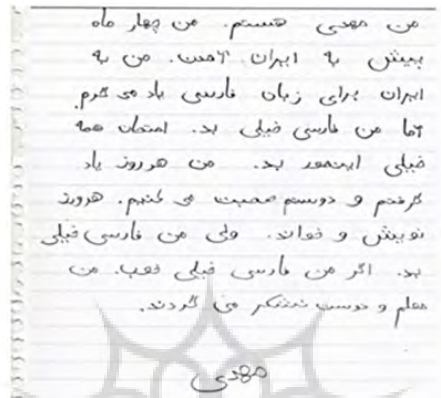 من مهدی هستم. من چهار ماه
پیش به ایران آمدن. من به
ایران برای زبان فارسی یاد می گرم.
آما من فارسی خیلی بد. امتحان همه
خیلی بد. من هر روز یاد
گرفتم و دوستم صحبت می کنیم. هرورز
نویش و خواند. ولی من فارسی خیلی
بد. اگر من فارسی خیلی خوب. من
معلم و دوست تشکر می گردند.
مهدی